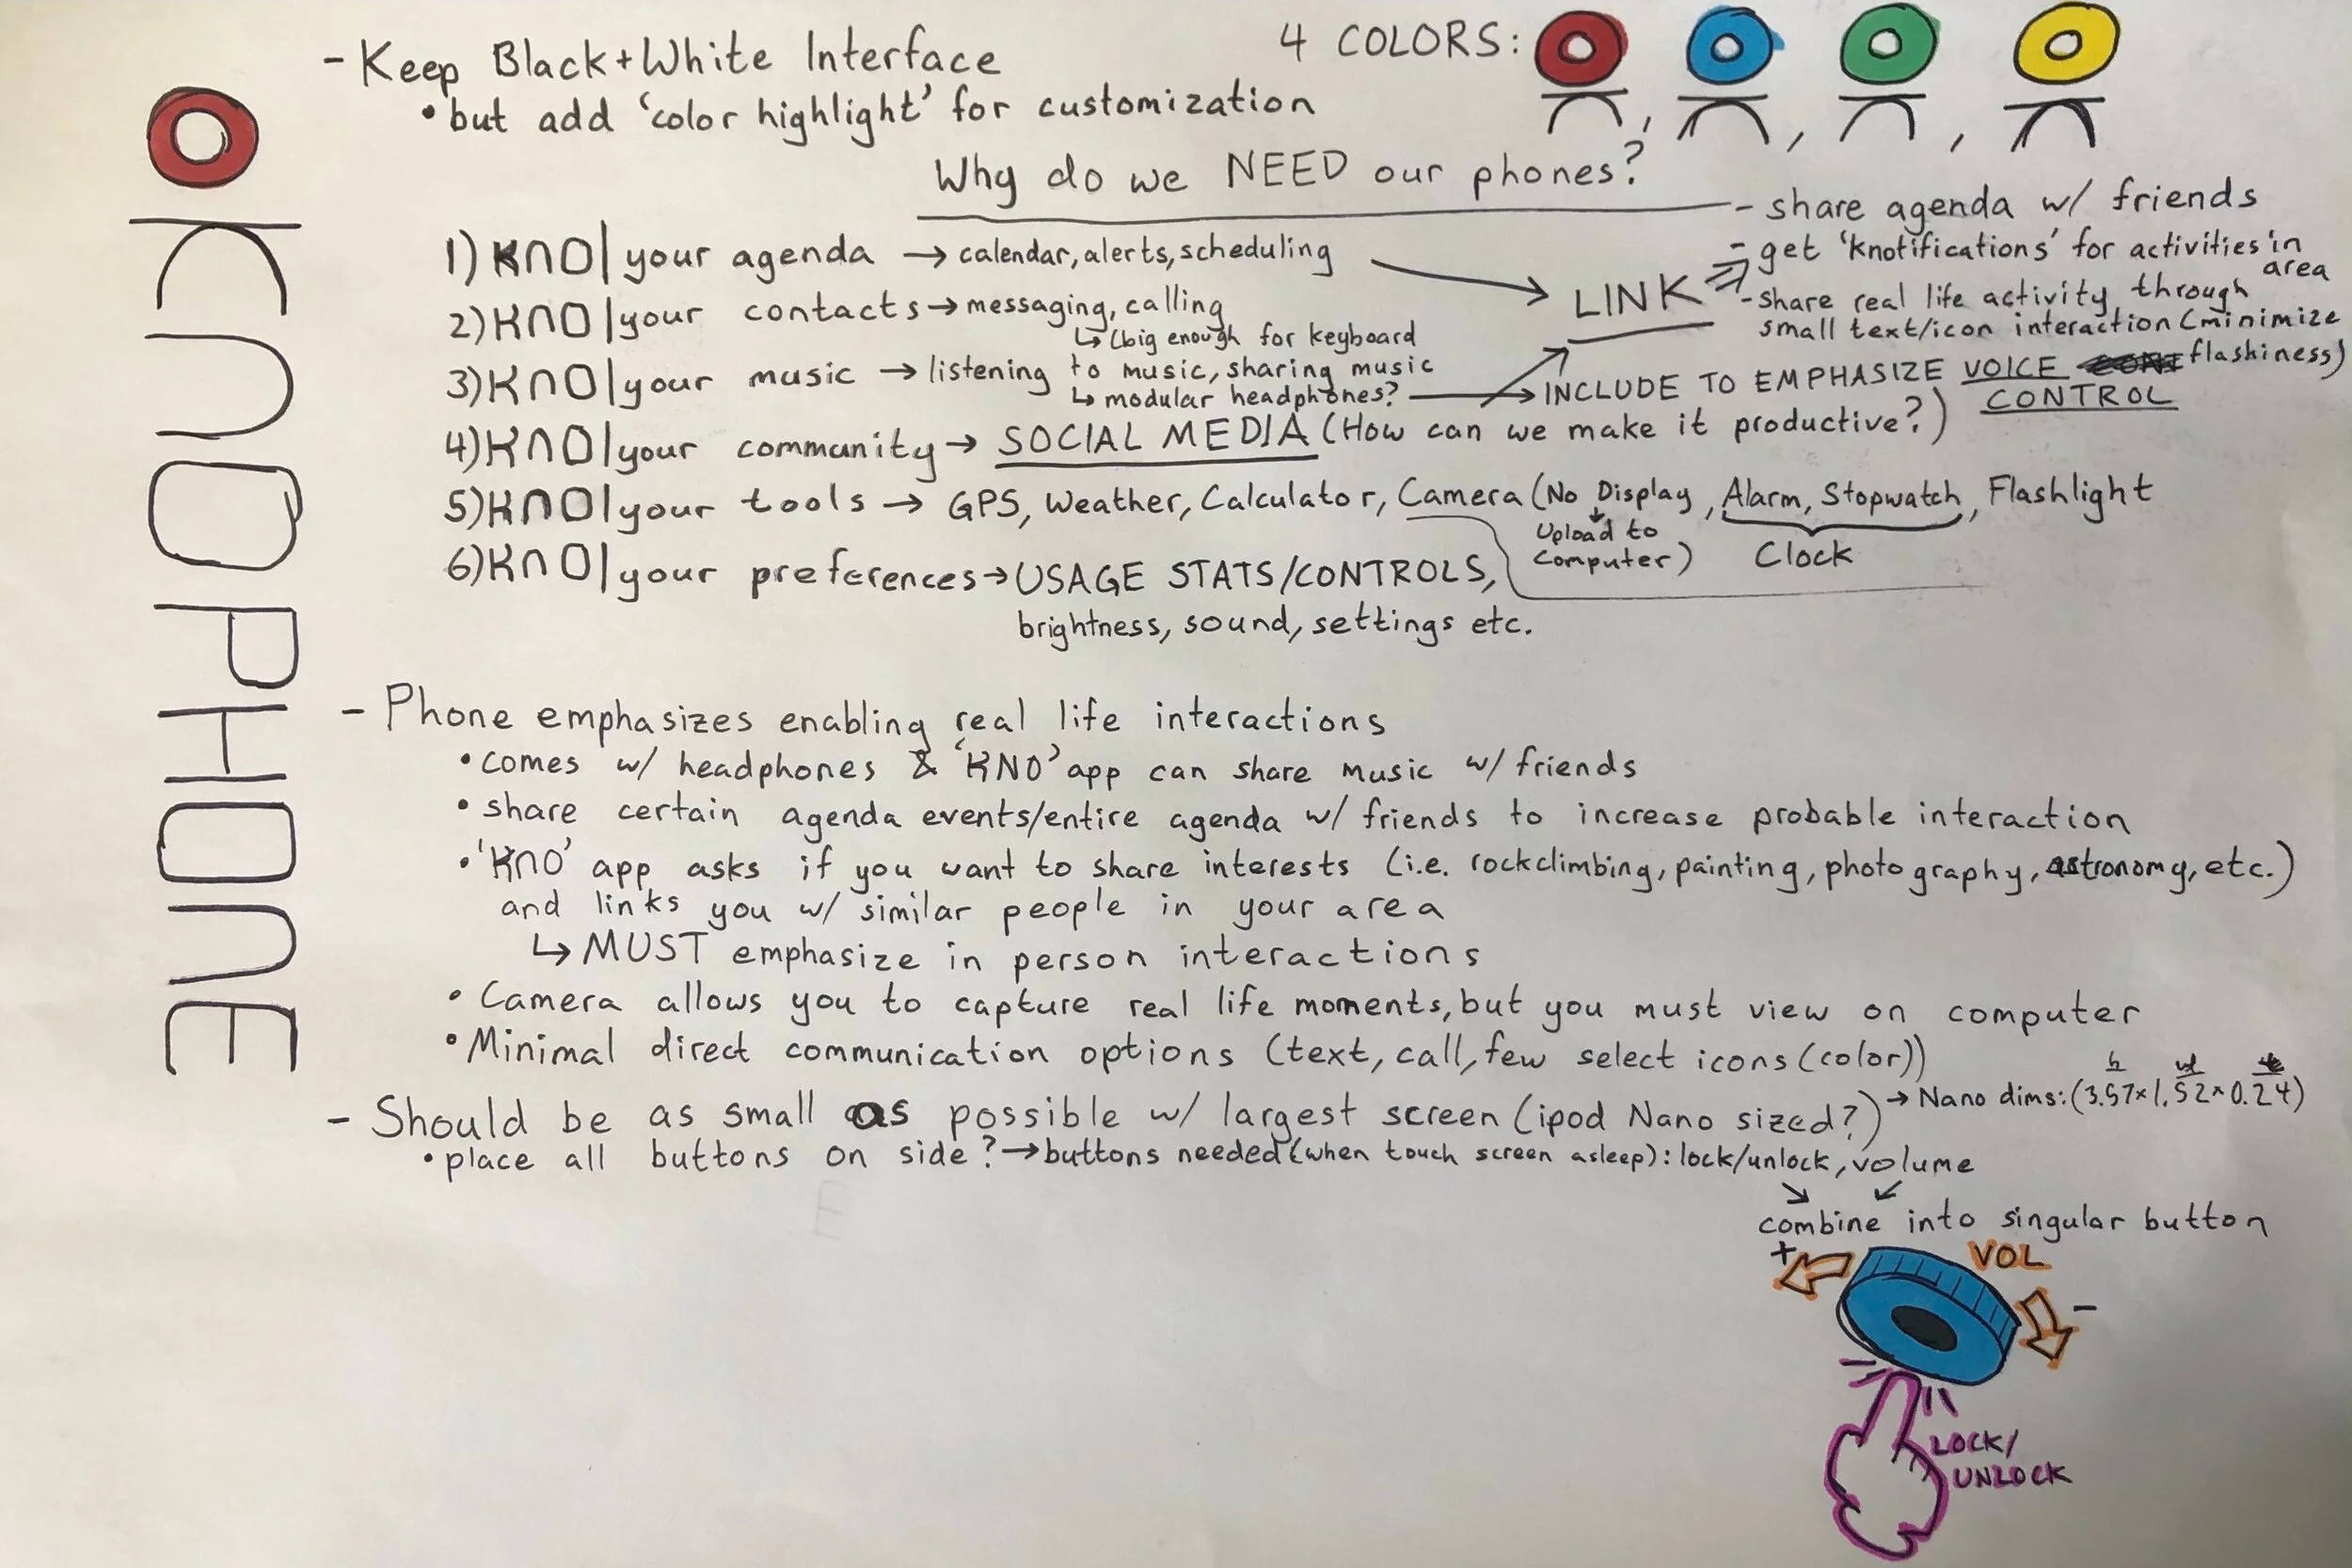 KNOPHONE
- Keep Black+White Interface
• but add 'color highlight' for customization
4 COLORS: , , ,
Why do we NEED our phones?
1) KNO| your agenda → calendar, alerts, scheduling
2) KNO| your contacts → messaging, calling
↳ (big enough for keyboard
3) KNO| your music → listening to music, sharing music
↳ modular headphones? → INCLUDE TO EMPHASIZE VOICE
CONTROL
LINK
- share agenda w/ friends
- get 'knotifications' for activities in
area
- share real life activity through
small text/icon interaction (minimize
flashiness)
4) KNO| your community → SOCIAL MEDIA (How can we make it productive?)
5) KNO| your tools → GPS, Weather, Calculator, Camera (No Display, Alarm, Stopwatch, Flashlight
Upload to
computer)
Clock
6) KNO| your preferences → USAGE STATS/CONTROLS,
brightness, sound, settings etc.
- Phone emphasizes enabling real life interactions
• comes w/ headphones & 'KNO' app can share music w/ friends
• share certain agenda events/entire agenda w/ friends to increase probable interaction
• 'KNO' app asks if you want to share interests (i.e. rockclimbing, painting, photography, astronomy, etc.)
and links you w/ similar people in your area
↳ MUST emphasize in person interactions
• Camera allows you to capture real life moments, but you must view on computer
• Minimal direct communication options (text, call, few select icons (color))
- Should be as small as possible w/ largest screen (ipod Nano sized?) → Nano dims: (3.57×1.52×0.24)
h w
• place all buttons on side? → buttons needed (when touch screen asleep): lock/unlock, volume
combine into singular button
+ VOL -
LOCK/
UNLOCK